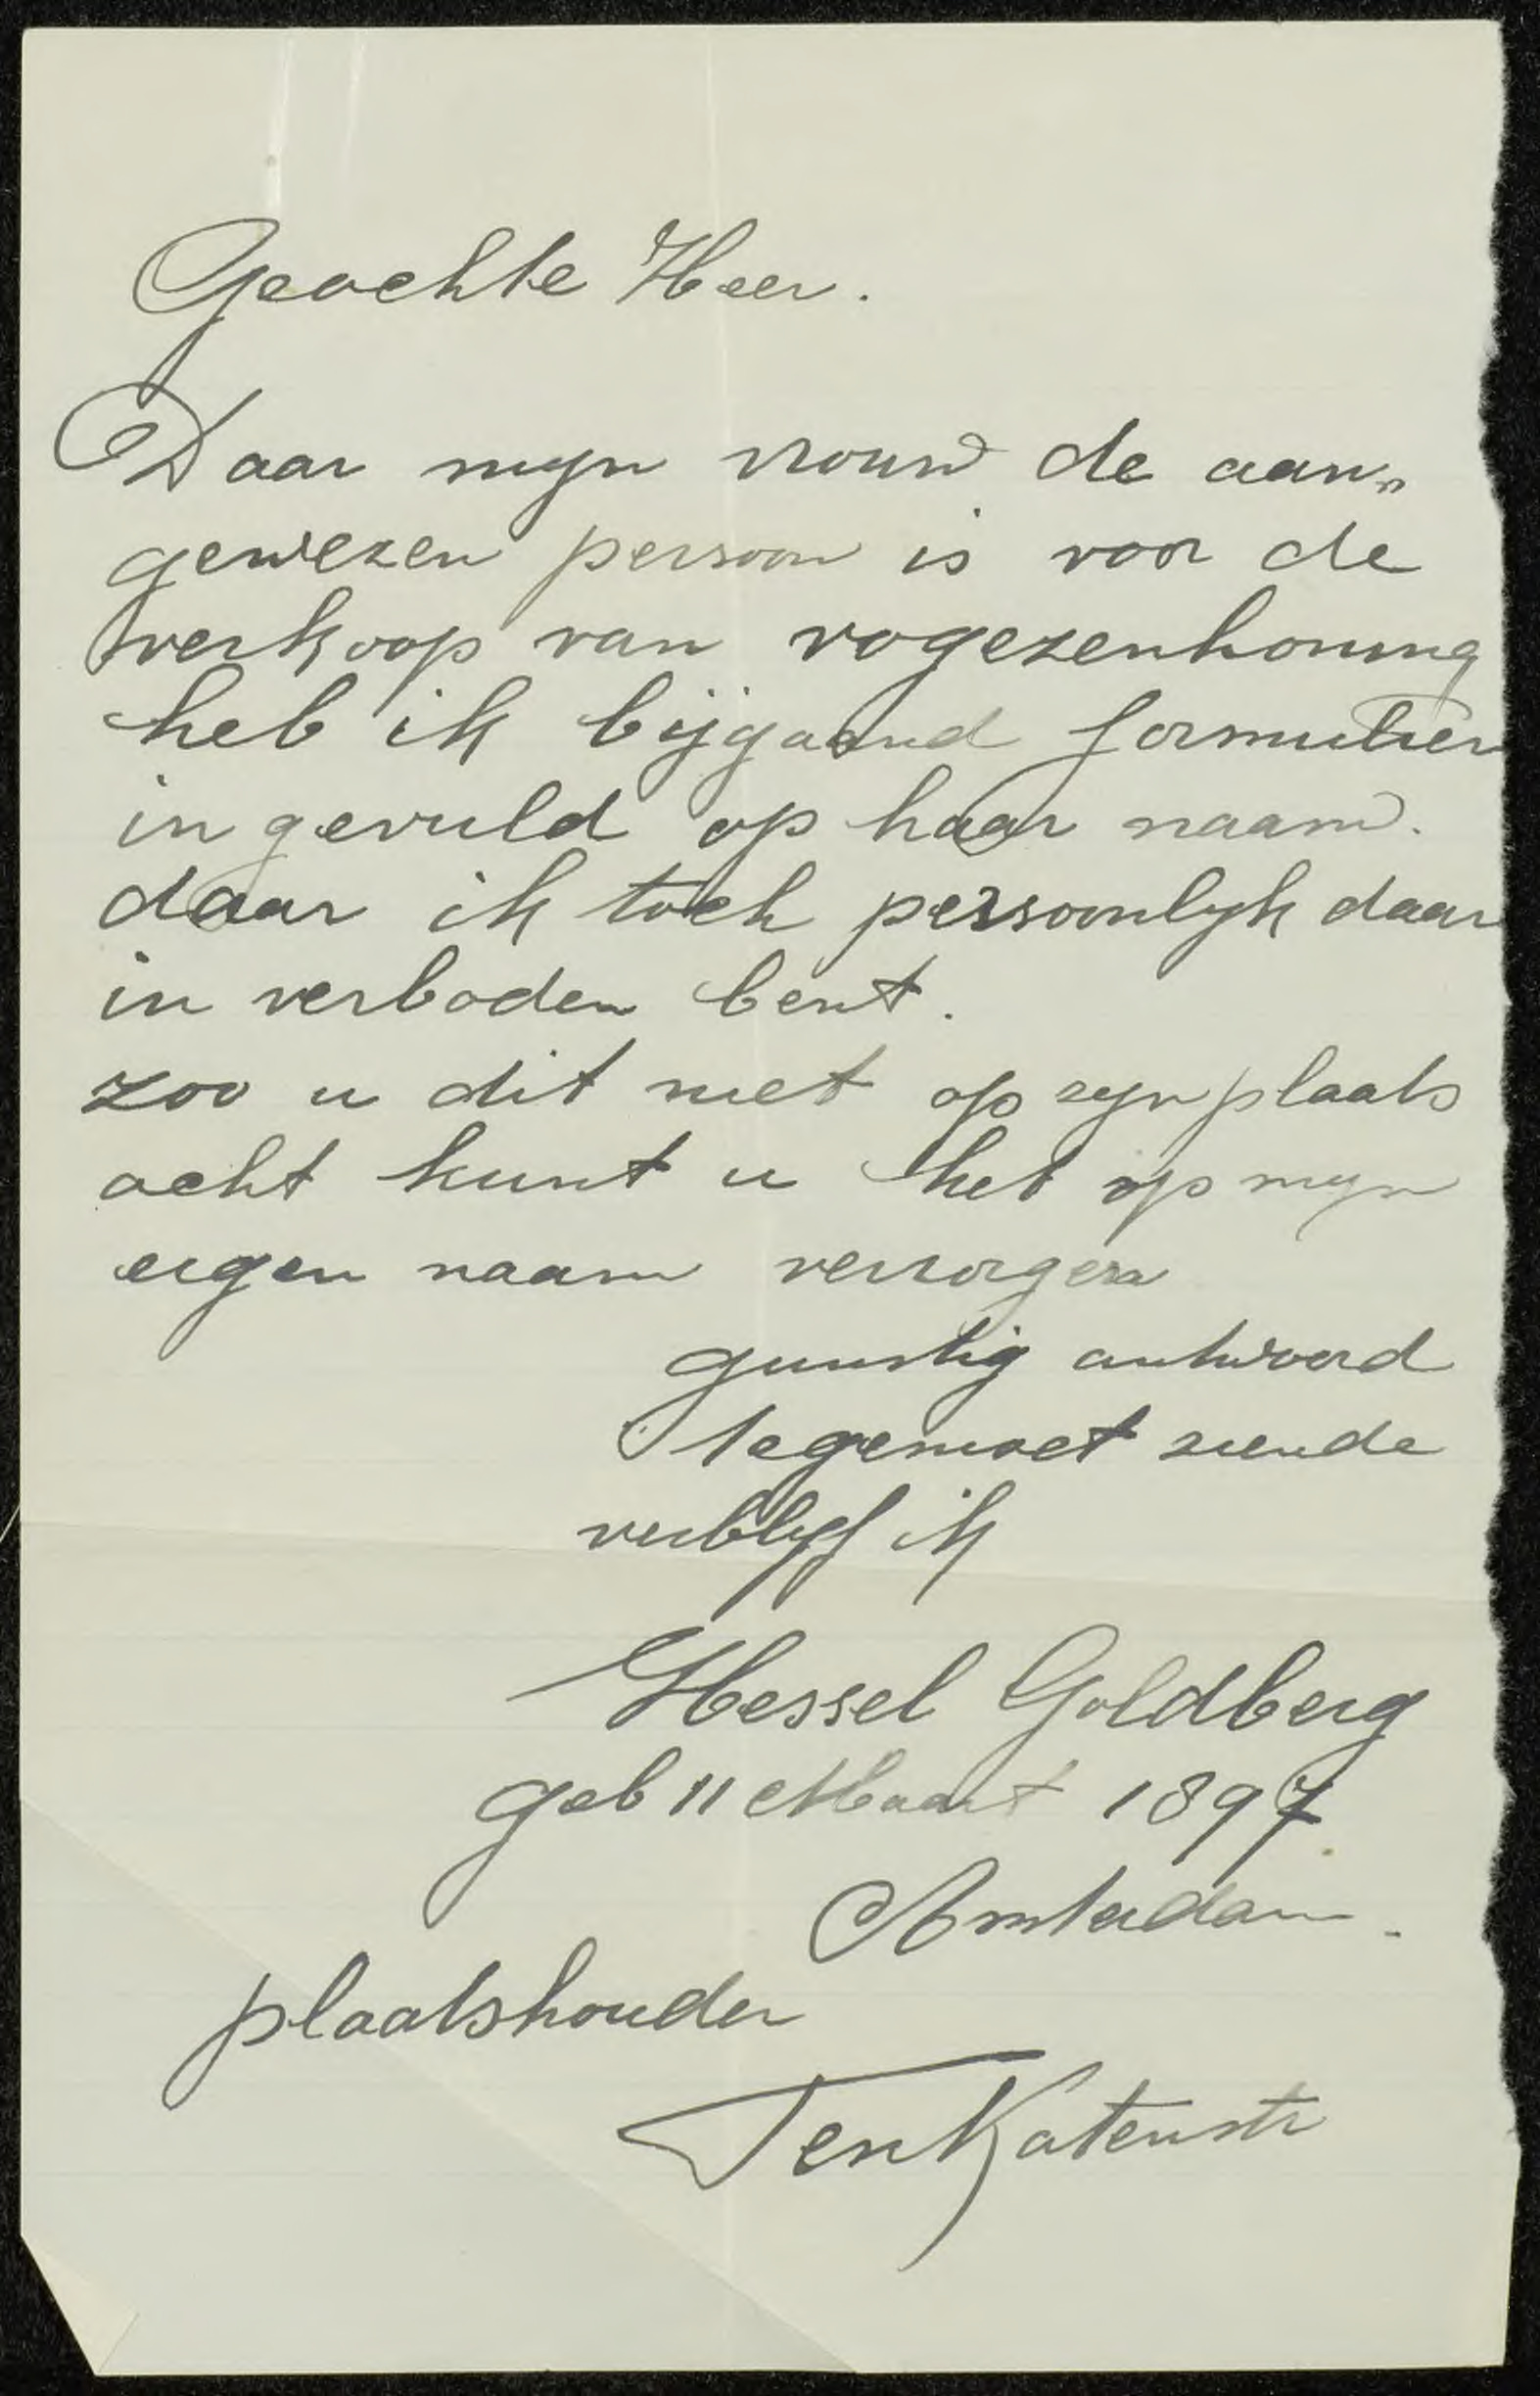 Geachte Heer.
Daar mijn vrouw de aan„
gewezen persoon is voor de
verkoop van vogezenhoning
heb ik bijgaand formulier
in gevuld op haar naam.
daar ik toch persoonlijk daar
in verboden bent.
zoo u dit niet op zijn plaats
acht kunt u het op mijn
eigen naam verzorgen
gunstig antwoord
tegemoet ziende
verblijf ik
Hessel Goldberg
geb 11 Maart 1897
Amsterdam.
plaatshouder
Ten Katenstr